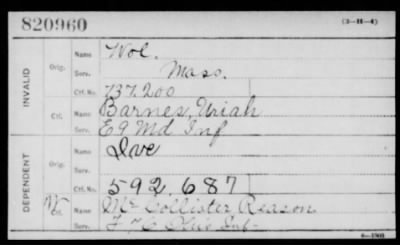 820960 (3-H-4)
INVALID
Orig.
Name Wol.
Serv. Mass.
Ctf. No. 737.200
Ctf.
Name Barnes, Uriah
Serv. E 9 Md Inf
DEPENDENT
Orig.
Name
Serv.
Ctf. No. 592.687
W Ctf.
Name McCollister, Reason
Serv. F 76 Ohio Inf.